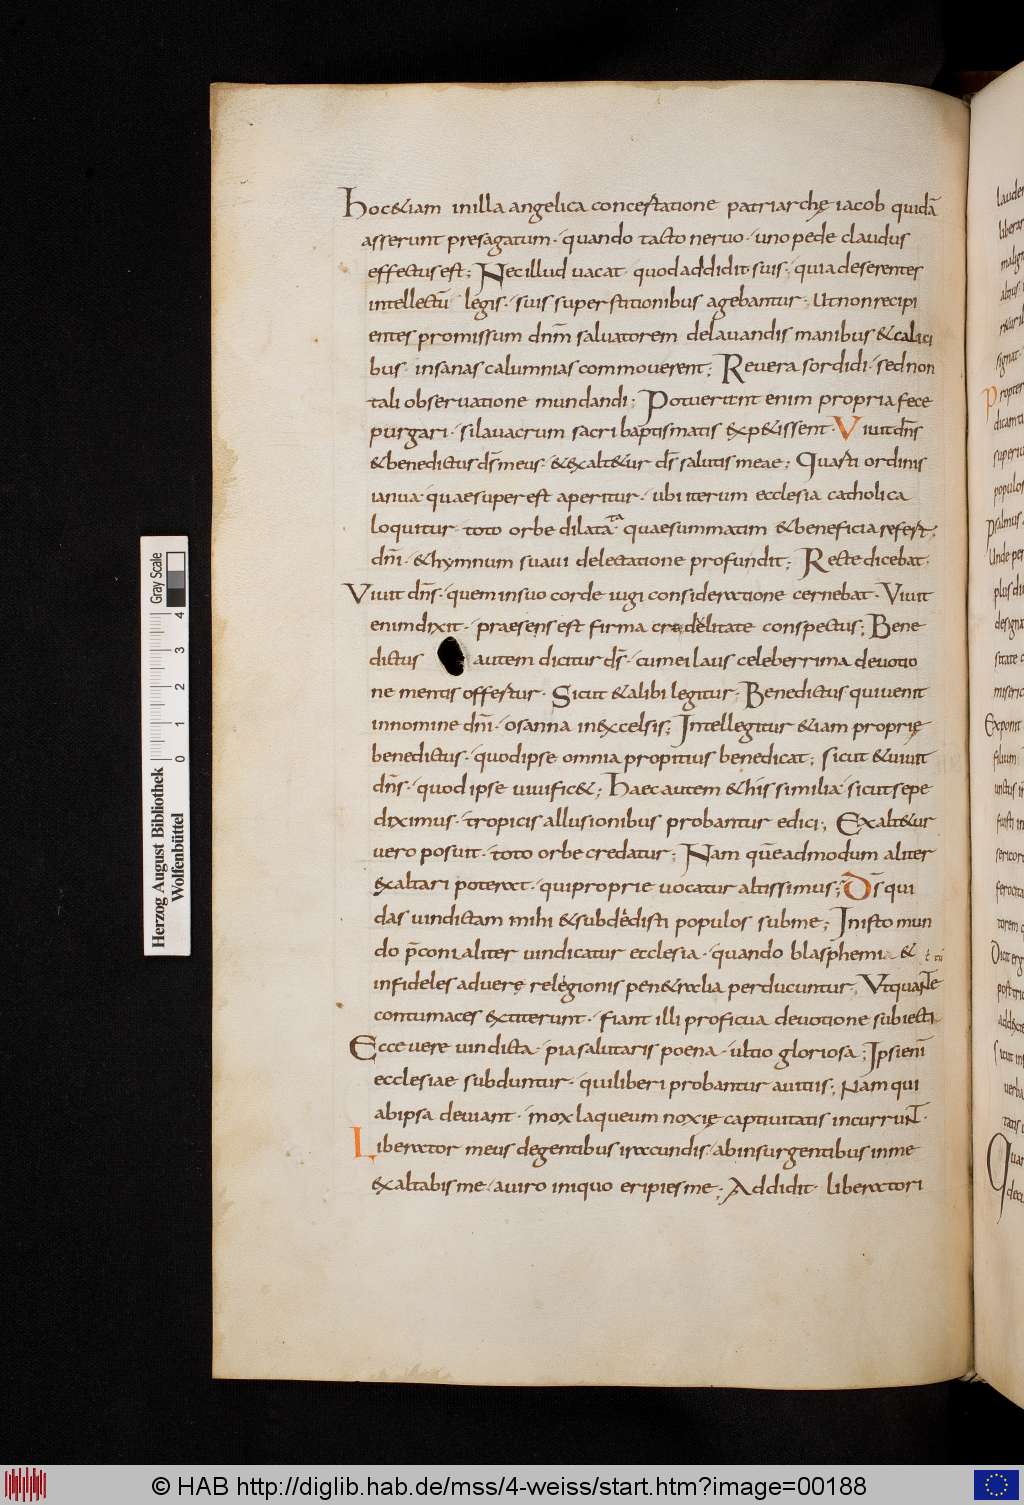 Hoc&iam in illa angelica concertatione patriarchę iacob quidā
asserunt praesagatum · quando tacto neruo · uno pede claudus
effectus est; Nec illud uacat · quod addidit suis · quia deserentes
intellectū legis · suis superstitionibus agebantur; Ut non recipi
entes promissum dnm̄ saluatorem delauandis manibus & calici
bus · insanas calumnias commouerent; Reuera sordidi · sed non
tali obseruatione mundandi; Potuerunt enim propria fece
purgari · si lauacrum sacri baptismatis exp&issent · Uiuit dn̄s
& benedictus ds̄ meus · & exalt&ur ds̄ salutis meae; Quarti ordinis
ianua quae superest aperitur · ubi iterum ecclesia catholica
loquitur toto orbe dilatata quae summatim & beneficia refert
dn̄i · & hymnum suaui delectatione profundit; Recte dicebat
Viuit dn̄s · quem in suo corde iugi consideratione cernebat · Viuit
enim dixit · praesens est firma credelitate conspectus; Bene
dictus autem dicitur ds̄ · cum ei laus celeberrima deuotio
ne mentis offertur · Sicut & alibi legitur · Benedictus qui uenit
in nomine dn̄i · osanna in excelsis; Intellegitur &iam proprię
benedictus · quod ipse omnia propitius benedicat; sicut & uiuit
dn̄s · quod ipse uiuific&; Haec autem & his similia · sicut sepe
diximus · tropicis allusionibus probantur edici; Exalt&ur
uero posuit · toto orbe credatur; Nam quēadmodum aliter
exaltari poterat · qui proprie uocatur altissimus; Ds̄ qui
das uindictam mihi & subdedisti populos sub me; In isto mun
do p̄coniali ter uindicatur ecclesia · quando blasphemia &
infideles ad uerę relegionis penetralia perducuntur; Ut qua NTe
contumaces extiterunt · fiant illi proficua deuotione subiecti
Ecce uere uindicta · pia salutaris poena · ultio gloriosa; Ipsi enī
ecclesiae subduntur · qui liberi probantur a uitiis; Nam qui
ab ipsa deuiant · mox laqueum noxię captiuitatis incurruNT ·
Liberator meus de gentibus iracundis · ab insurgentibus in me
exaltabis me · a uiro iniquo eripies me; Addidit liberatori
Gray Scale
0 1 2 3 4
Herzog August Bibliothek
Wolfenbüttel
© HAB http://diglib.hab.de/mss/4-weiss/start.htm?image=00188